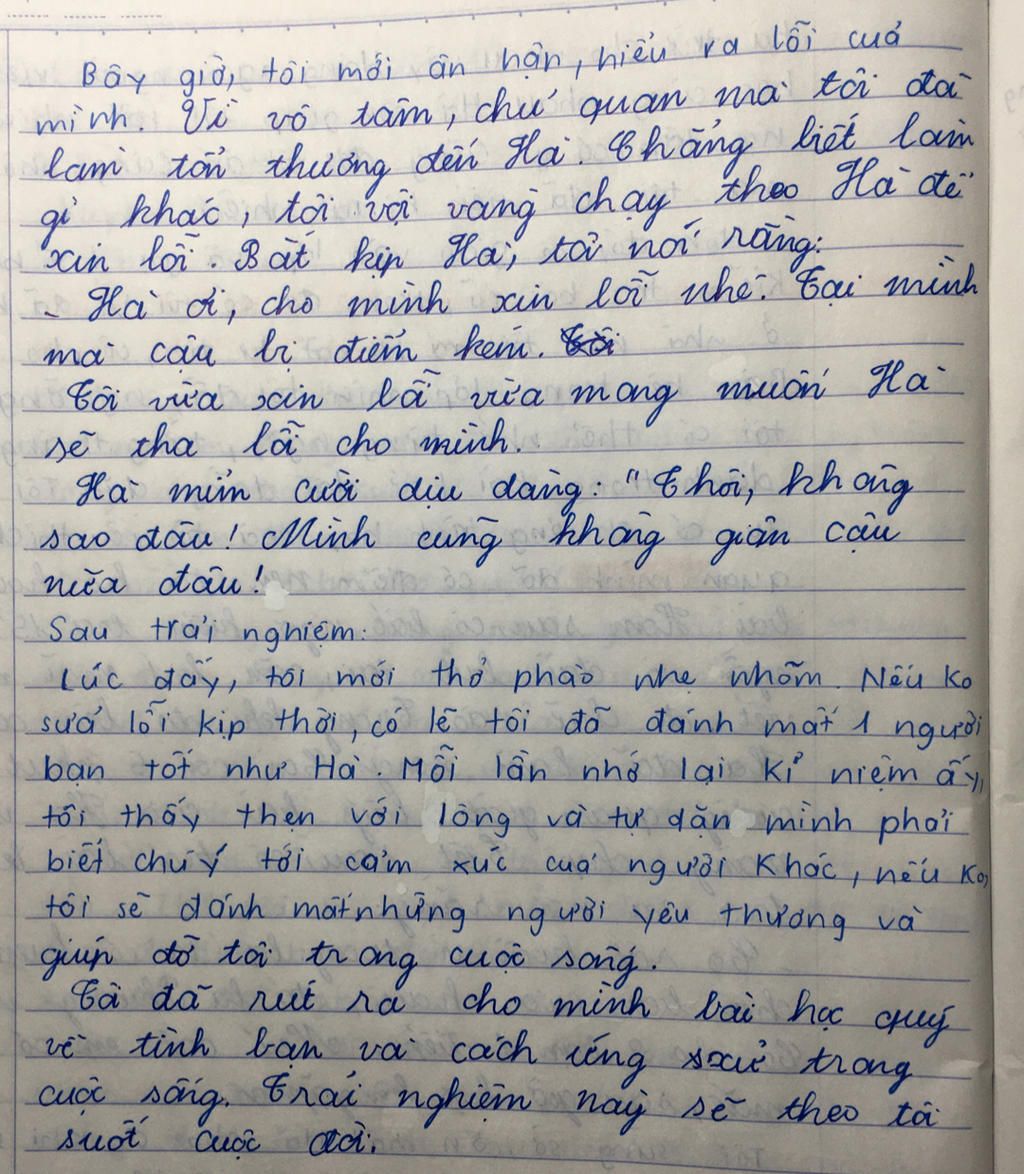 Bây giờ, tôi mới ân hận, hiểu ra lỗi của
mình. Vì vô tâm, chủ quan mà tôi đã
làm tổn thương đến Hà. Chẳng biết làm
gì khác, tôi vội vàng chạy theo Hà để
xin lỗi. Bắt kịp Hà, tôi nói rằng:
- Hà ơi, cho mình xin lỗi nhé. Tại mình
mà cậu bị điểm kém.
Tôi vừa xin lỗi vừa mong muốn Hà
sẽ tha lỗi cho mình.
Hà mỉm cười dịu dàng: "Thôi, không
sao đâu! Mình cũng không giận cậu
nữa đâu!
Sau trải nghiệm:
Lúc đấy, tôi mới thở phào nhẹ nhõm. Nếu ko
sửa lỗi kịp thời, có lẽ tôi đã đánh mất 1 người
bạn tốt như Hà. Mỗi lần nhớ lại kỉ niệm ấy,
tôi thấy thẹn với lòng và tự dặn mình phải
biết chú ý tới cảm xúc của người khác, nếu ko,
tôi sẽ đánh mất những người yêu thương và
giúp đỡ tôi trong cuộc sống.
Tôi đã rút ra cho mình bài học quý
về tình bạn và cách ứng sxử trong
cuộc sống. Trải nghiệm này sẽ theo tôi
suốt cuộc đời.